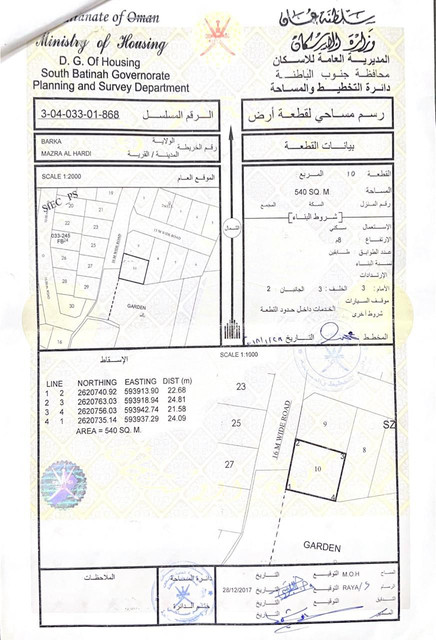 Sultanate of Oman
Ministry of Housing
D. G. Of Housing
South Batinah Governorate
Planning and Survey Department
سلطنة عمان
وزارة الإسكان
المديرية العامة للاسكان
محافظة جنوب الباطنة
دائرة التخطيط والمساحة
3-04-033-01-868
الرقم المسلسل
رسم مساحي لقطعة أرض
BARKA
الولاية
MAZRA AL HARDI
المدينة / القرية
رقم الخريطة
بيانات القطعة
SCALE 1:2000
الموقع العام
القطعة
10
المربع
المساحة
540 SQ. M.
رقم المنزل
السكة
المجمع
شروط البناء
الإستعمال
سكني
الارتفاع
8م
عدد الطوابق
طابقين
نسبة البناء
الارتدادات
الأمام : 3
الخلف : 3
الجانبان
2
موقف السيارات
شروط اخرى
الخدمات داخل حدود القطعة
المخطط
التاريخ
SIEC PS
033-245
FB
15 M WIDE ROAD
15 M WIDE ROAD
10
GARDEN
الشمال
الإسقاط
SCALE 1:1000
LINE NORTHING EASTING DIST (m)
1 2 2620740.92 593913.90 22.68
2 3 2620763.03 593918.94 24.81
3 4 2620756.03 593942.74 21.58
4 1 2620735.14 593937.29 24.09
AREA = 540 SQ. M.
23
25
27
16 M WIDE ROAD
9
SZ
10
2
3
1
4
GARDEN
الملاحظات
دائرة المساحة
ختم الدائرة
28/12/2017
التاريخ
التوقيع
M.O.H
المساح
التاريخ
التوقيع
RAYA
الرسام
التاريخ
التوقيع
التاريخ
التوقيع